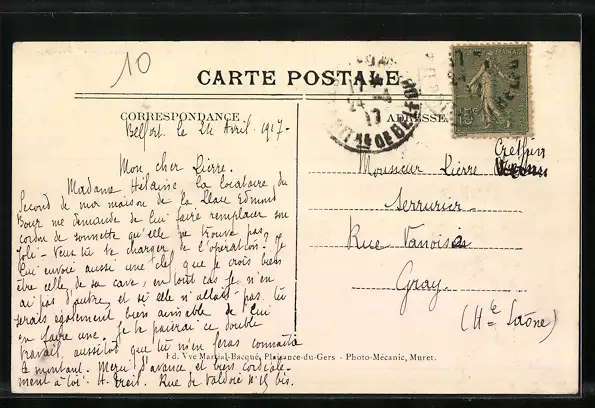 10
CARTE POSTALE
CORRESPONDANCE
ADRESSE
Belfort, le 24 Avril 1917-
Mon cher Pierre.
Madame Hélaine, la locataire du
second de ma maison de la Place Edmond
Bour me demande de lui faire remplacer son
cordon de sonnette qu'elle ne trouve pas
joli. Veux tu te charger de l'opération? Je
lui envoie aussi une clef que je crois bien
être celle de sa cave, en tout cas je n'en
ai pas d'autre, et si elle n'allait pas tu
serais également bien aimable de lui
en faire une. Je te paierai ce double
travail aussitôt que tu m'en feras connaître
le montant. Merci d'avance et bien cordiale-
ment à toi. H. Rue de Valdoie N° 15 bis.
Monsieur Pierre
Serrurier
Rue Vanoise
Gray
(Hte Saône)
Ed. Vve Martial-Bacqué, Plaisance-du-Gers - Photo-Mécanic, Muret.
15c
24
17
DE BELFORT